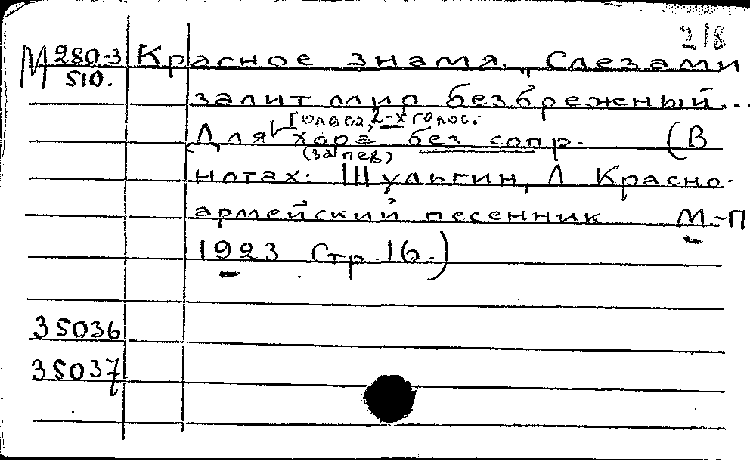 218
М 280-3 Красное знамя. „Слезами
510.
залит мир безбрежный...
голоса, 2-х голос.
Для хора без сопр. (В
(запев)
нотах: Шульгин, Л Красно-
армейский песенник М.-П
1923 Стр. 16.)
35036
35037